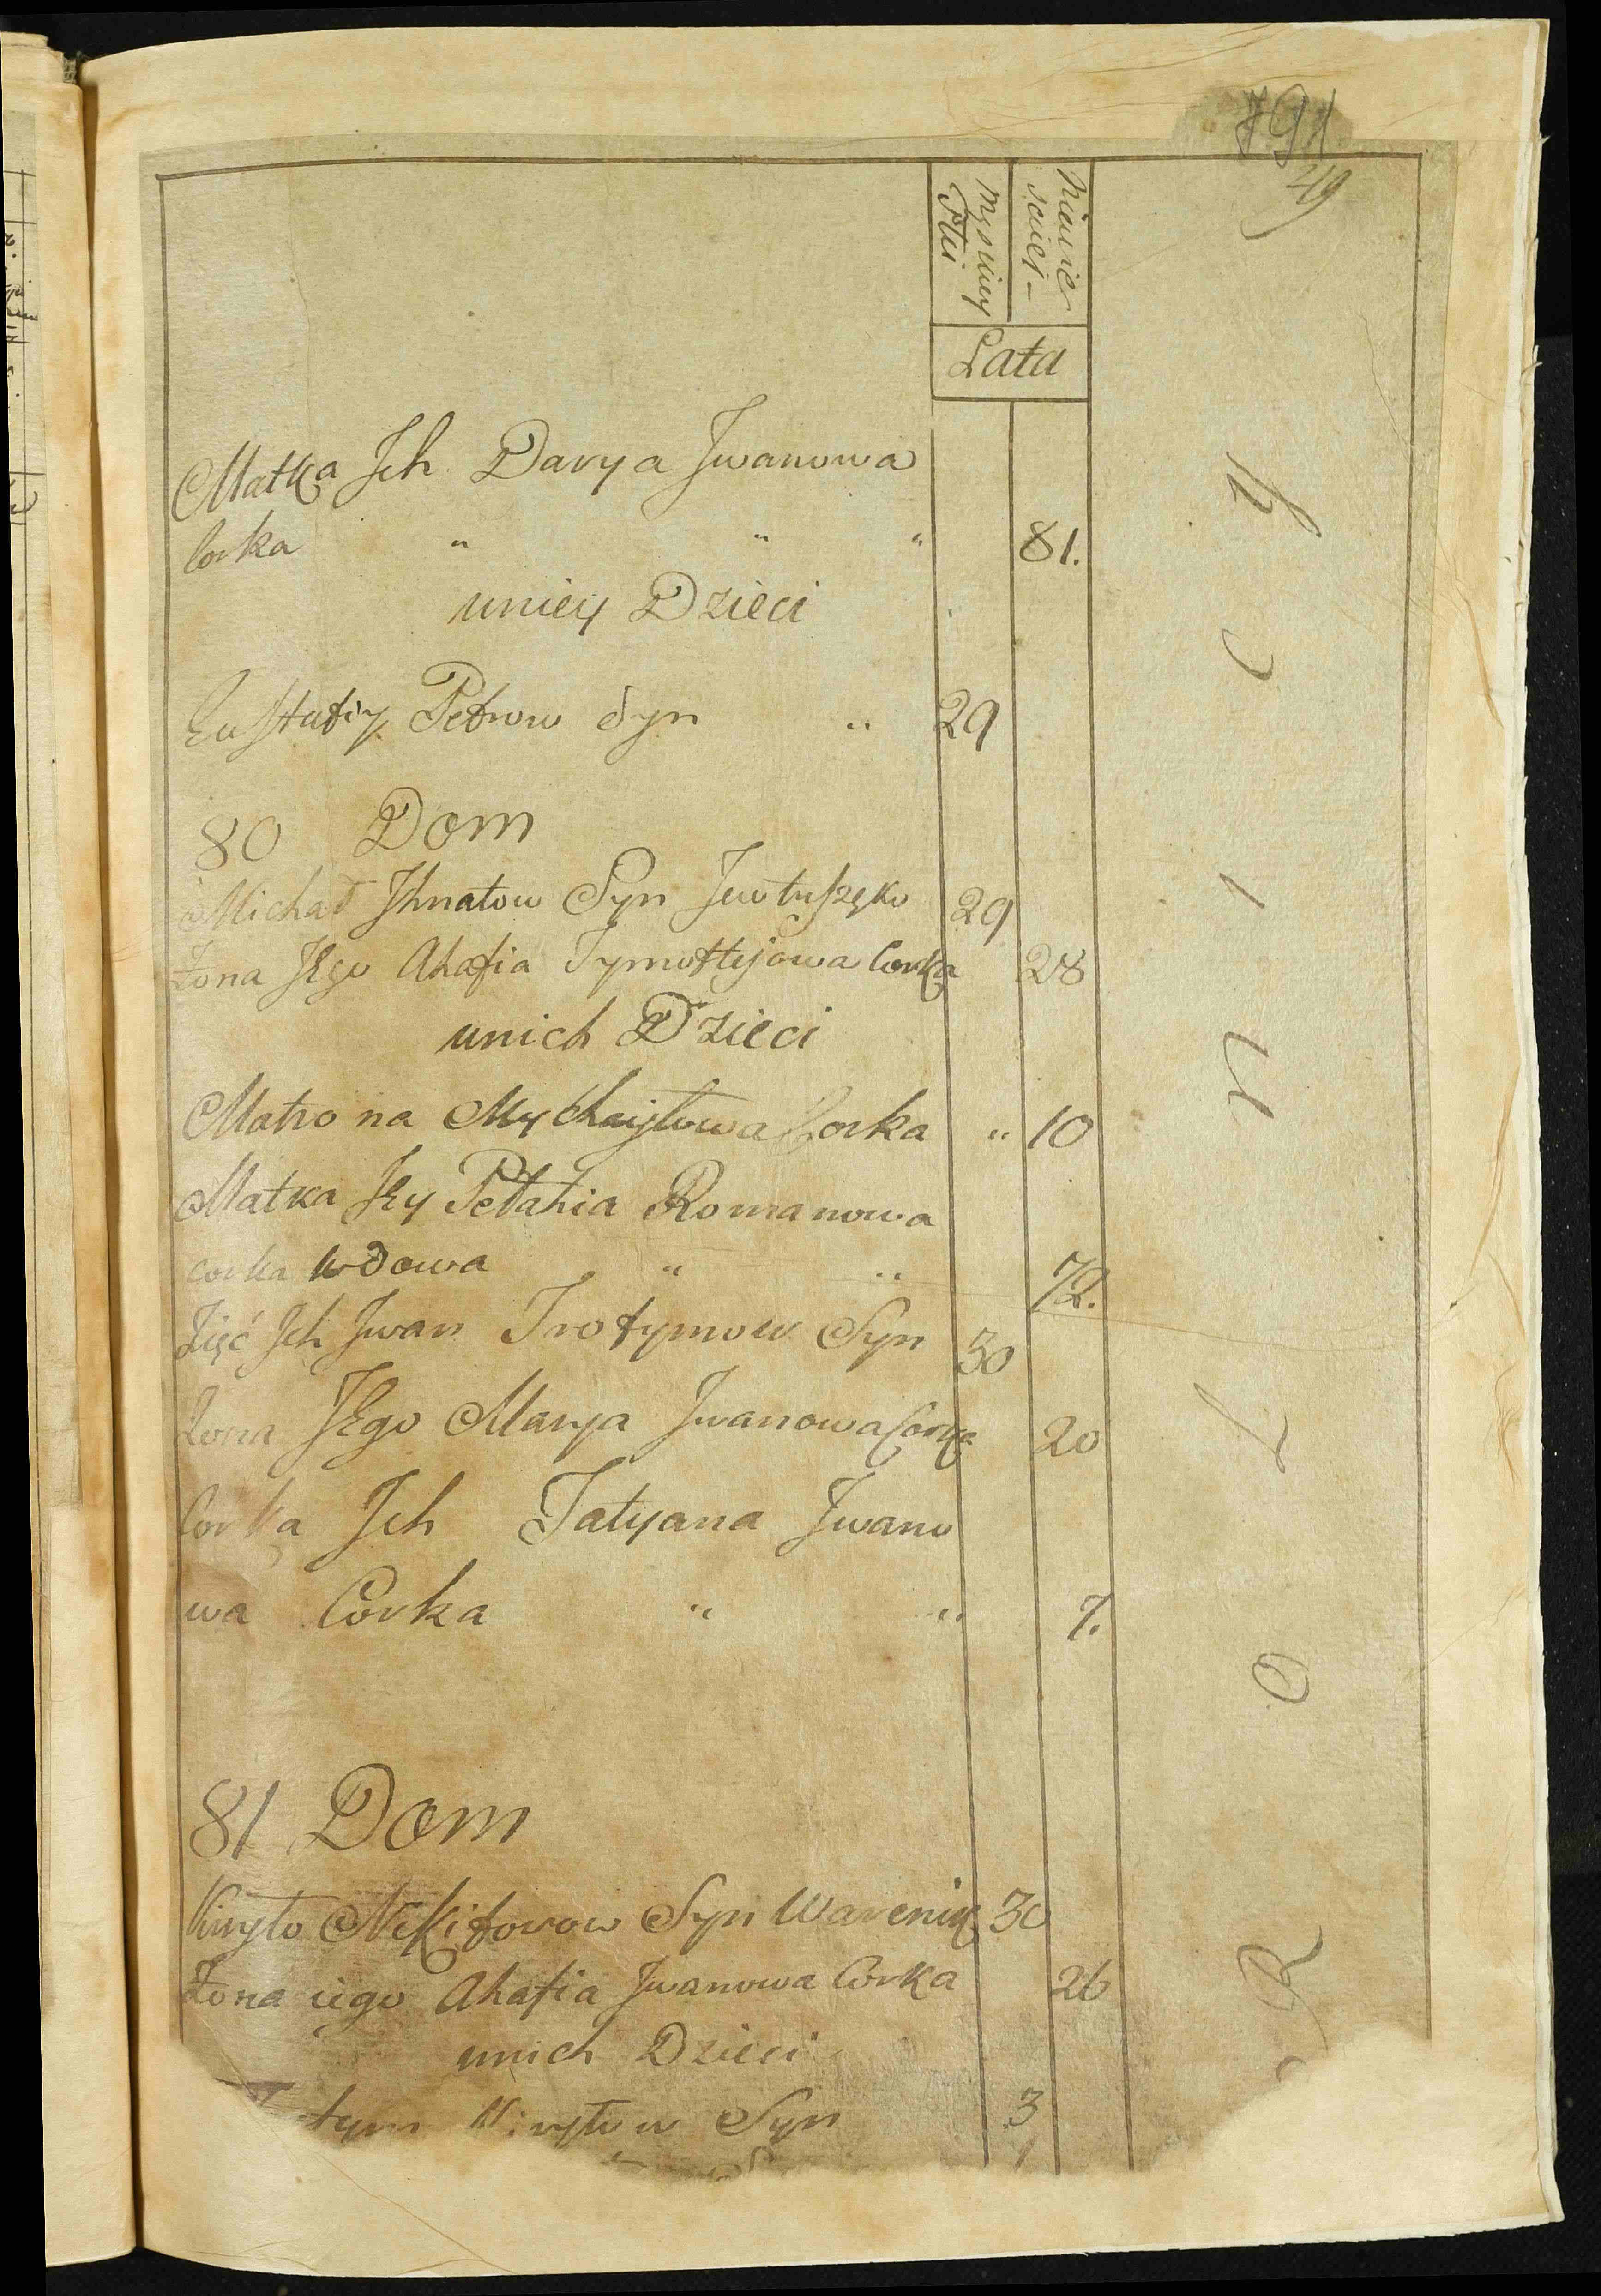 791
49
Męskiey Płci
Niewie sciej-
Lata
Matka Jch Darya Jwanowa
Corka " " " 81.
uniey Dzieci
Eustafiy Petrow Syn " 29
80 Dom
Michał Jhnatow Syn Jewtuszęko 29
Żona Jego Ahafia Tymoftejowa Corka 28
unich Dzieci
Matrona Mychayłowa Corka " 10
Matka Jey Pełahia Romanowa
corka wdowa " " 72.
Zięć Jch Jwan Trofymow Syn 30
Żona JEgo Marya Jwanowa Corka 20
Corka Jch Tatyana Jwano
wa Corka " " 7.
81 Dom
Kiryło Nekiforow Syn Warenik 30
Żona iego Ahafia Jwanowa Corka 26
unich Dzieci
Kiryłow Syn 3
R O L N I C Y